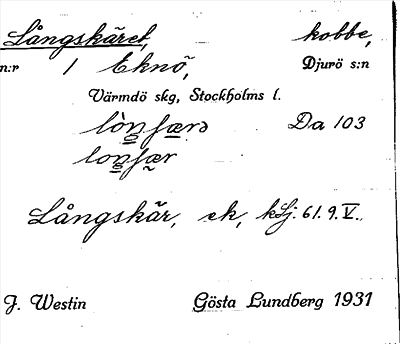 Långskäret, kobbe,
n:r 1 Eknö, Djurö s:n
Värmdö skg, Stockholms l.
lòŋʃærə Da 103
loŋʃær
Långskär, ek, kLj. 61. 9. V.
J. Westin Gösta Lundberg 1931